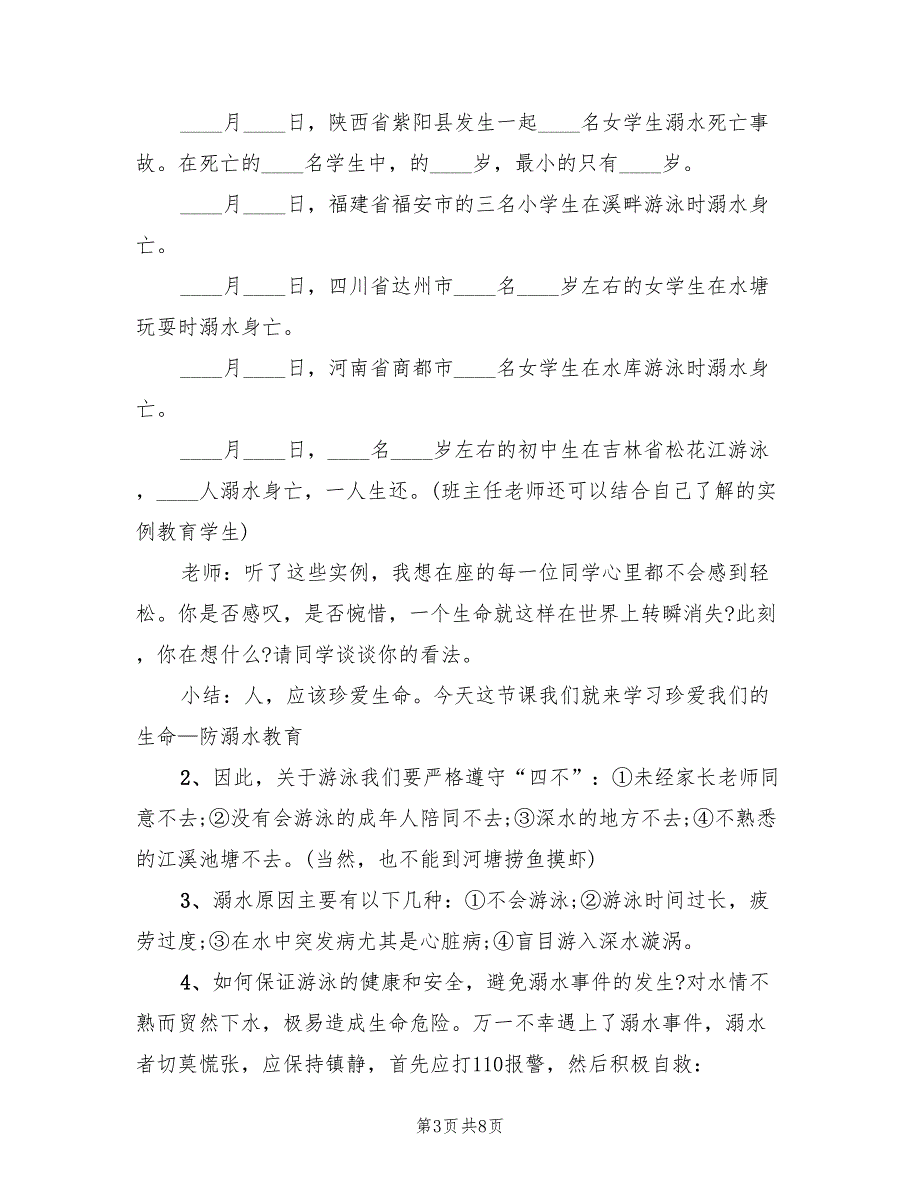 ____月____日，陕西省紫阳县发生一起____名女学生溺水死亡事
故。在死亡的____名学生中，的____岁，最小的只有____岁。
____月____日，福建省福安市的三名小学生在溪畔游泳时溺水身
亡。
____月____日，四川省达州市____名____岁左右的女学生在水塘
玩耍时溺水身亡。
____月____日，河南省商都市____名女学生在水库游泳时溺水身
亡。
____月____日，____名____岁左右的初中生在吉林省松花江游泳
，____人溺水身亡，一人生还。(班主任老师还可以结合自己了解的实
例教育学生)
老师：听了这些实例，我想在座的每一位同学心里都不会感到轻
松。你是否感叹，是否惋惜，一个生命就这样在世界上转瞬消失?此刻
，你在想什么?请同学谈谈你的看法。
小结：人，应该珍爱生命。今天这节课我们就来学习珍爱我们的
生命—防溺水教育
2、因此，关于游泳我们要严格遵守“四不”：①未经家长老师同
意不去;②没有会游泳的成年人陪同不去;③深水的地方不去;④不熟悉
的江溪池塘不去。(当然，也不能到河塘捞鱼摸虾)
3、溺水原因主要有以下几种：①不会游泳;②游泳时间过长，疲
劳过度;③在水中突发病尤其是心脏病;④盲目游入深水漩涡。
4、如何保证游泳的健康和安全，避免溺水事件的发生?对水情不
熟而贸然下水，极易造成生命危险。万一不幸遇上了溺水事件，溺水
者切莫慌张，应保持镇静，首先应打110报警，然后积极自救：
第3页 共8页